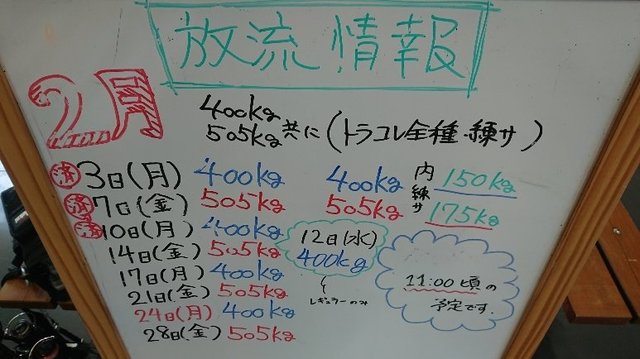 放流情報
2月
400kg
505kg 共に(トラコレ全種・練サ)
済 3日(月) 400kg 400kg 内練サ 150kg
済 7日(金) 505kg 505kg 175kg
済 10日(月) 400kg
14日(金) 505kg
17日(月) 400kg
21日(金) 505kg
24日(月) 400kg
28日(金) 505kg
12日(水)
400kg
レギュラーのみ
11:00頃の
予定です.